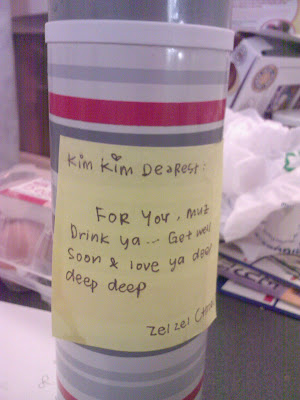 Kim Kim Dearest:
For You, muz
Drink ya... Get well
Soon & love ya deep
deep deep
Zel zel